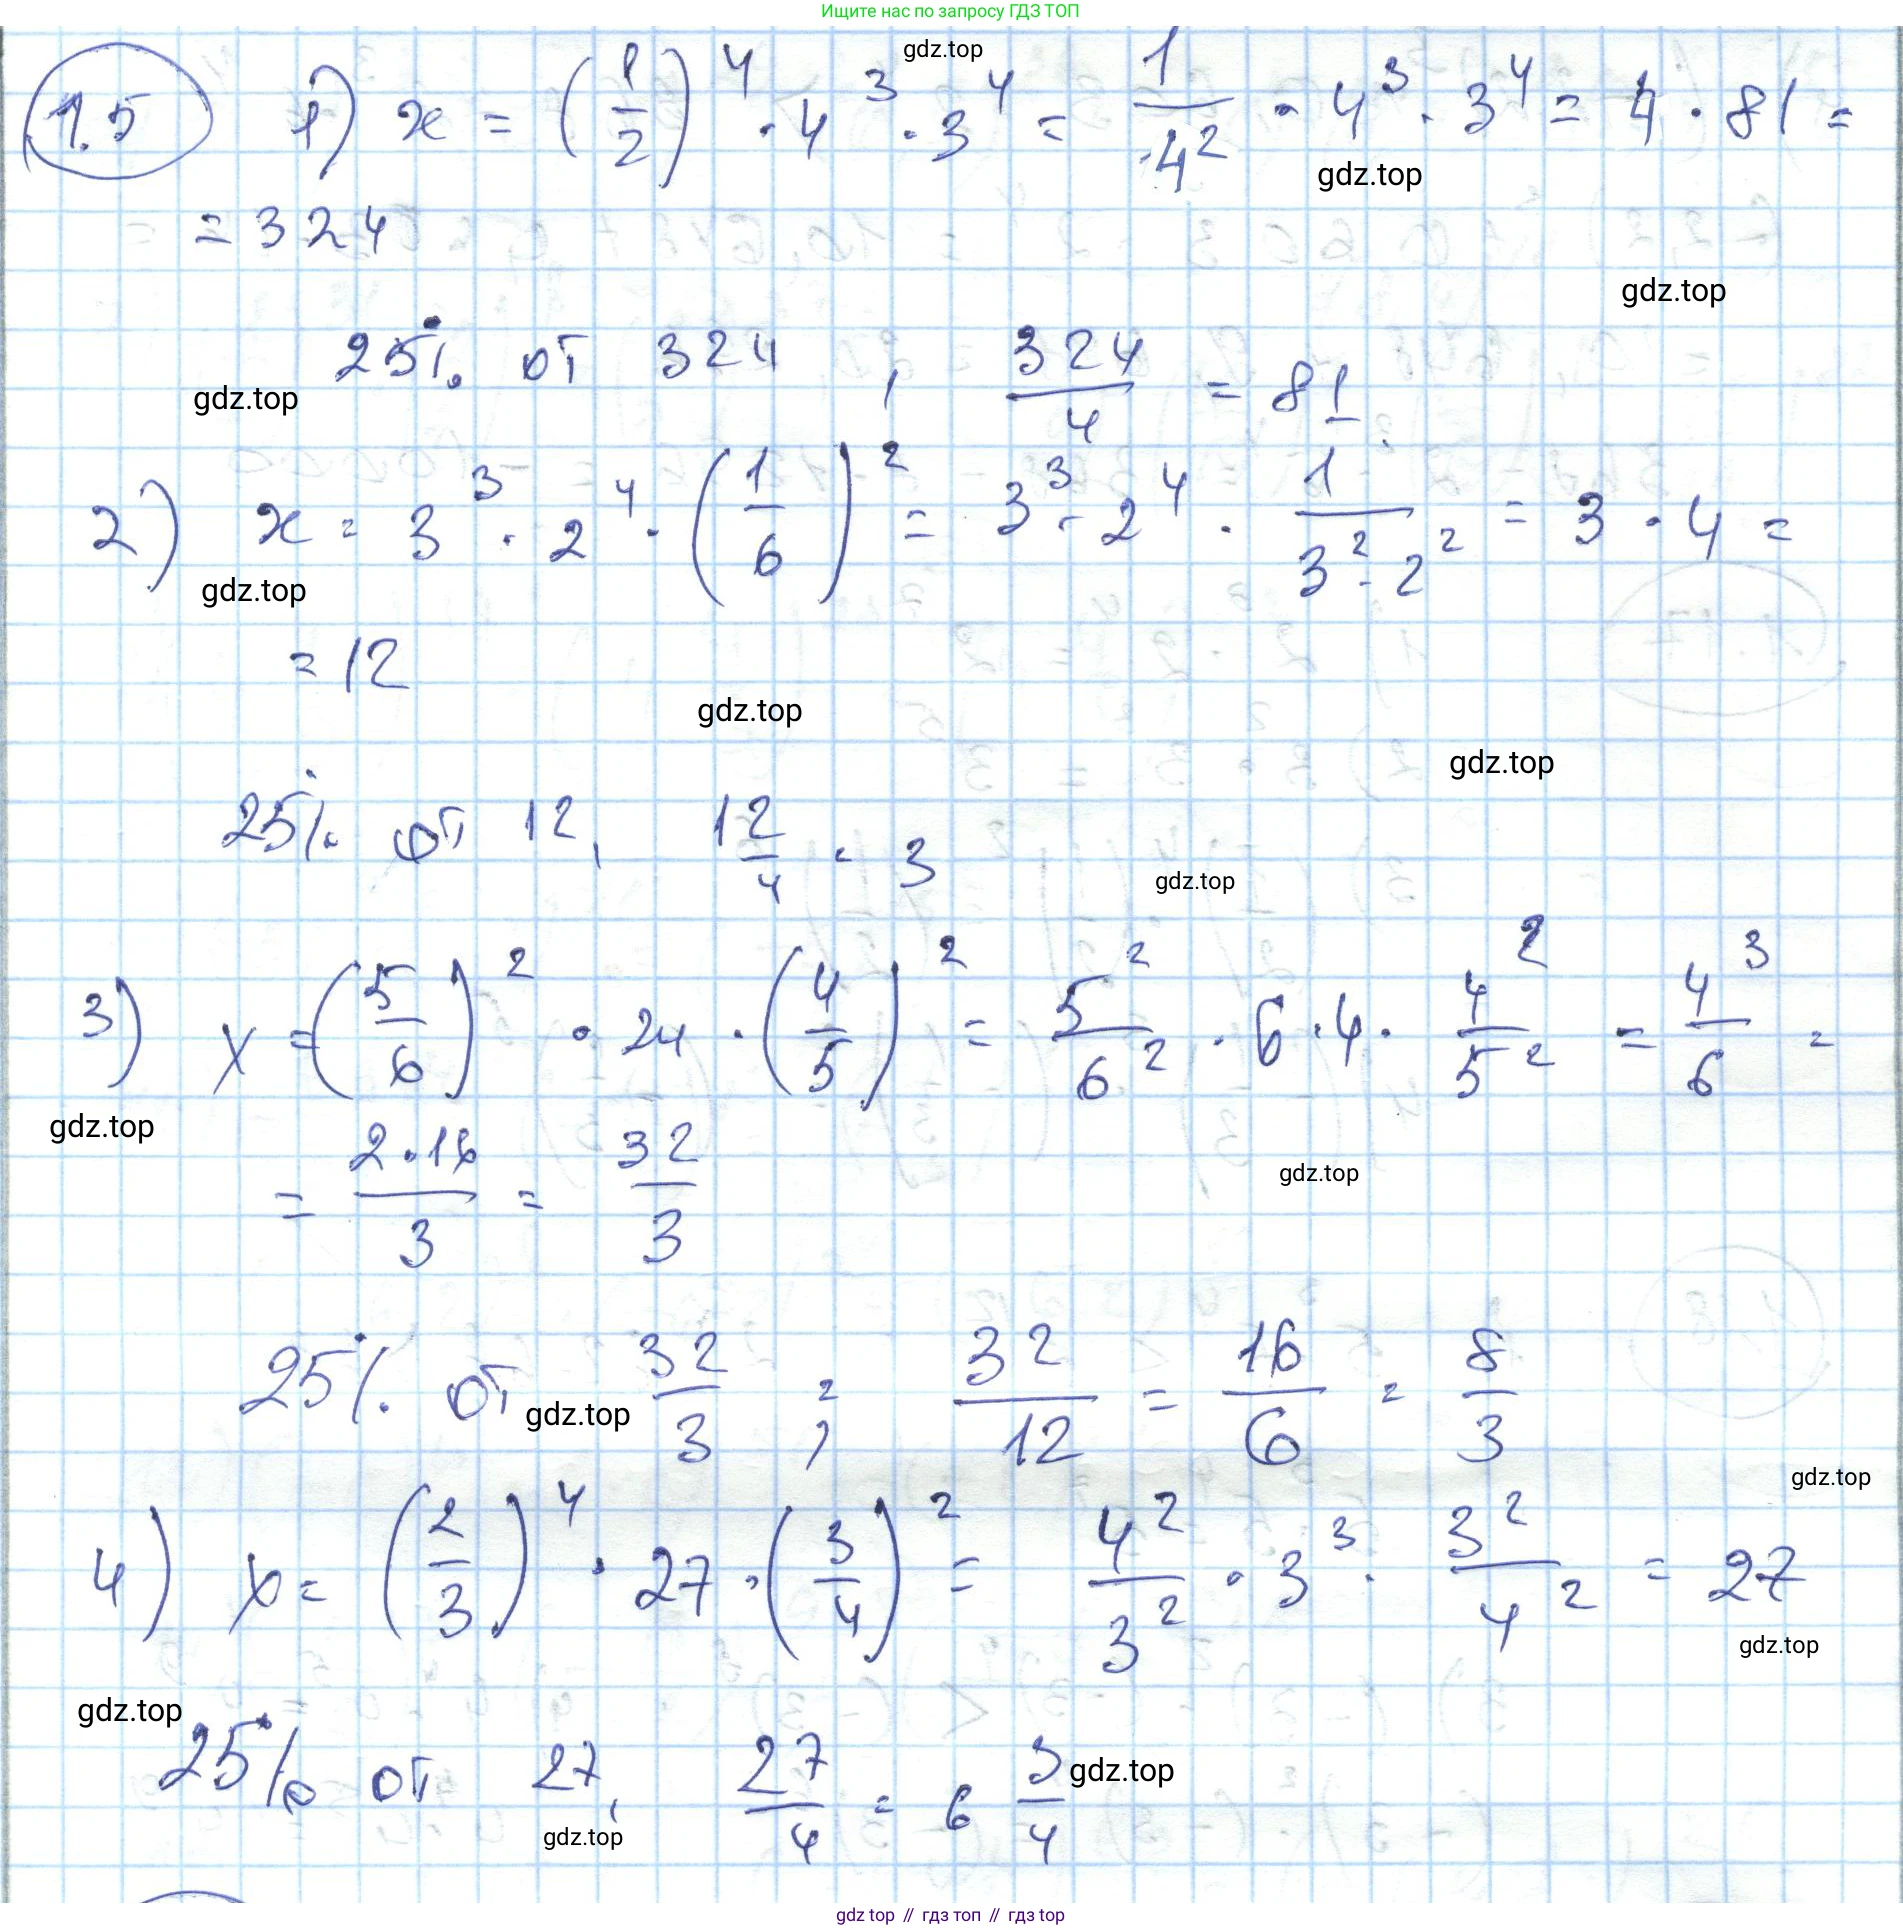 Ищите нас по запросу ГДЗ ТОП
gdz.top
1.5 1) x = (1/2)^4 · 4^3 · 3^4 = 1/4^2 · 4^3 · 3^4 = 4 · 81 =
gdz.top
= 324
gdz.top
25% от 324, 324/4 = 81
gdz.top
2) x = 3^3 · 2^4 · (1/6)^2 = 3^3 · 2^4 · 1/(3^2 · 2^2) = 3 · 4 =
gdz.top
= 12
gdz.top
gdz.top
25% от 12, 12/4 = 3
gdz.top
3) x = (5/6)^2 · 24 · (4/5)^2 = 5^2/6^2 · 6 · 4 · 4^2/5^2 = 4^3/6 =
gdz.top
= 2·16/3 = 32/3
gdz.top
25% от 32/3 ; 32/12 = 16/6 = 8/3
gdz.top
gdz.top
4) x = (2/3)^4 · 27 · (3/4)^2 = 4^2/3^2 · 3^3 · 3^2/4^2 = 27
gdz.top
gdz.top
25% от 27, 27/4 = 6 3/4
gdz.top
gdz.top
gdz top // гдз топ // гдз top